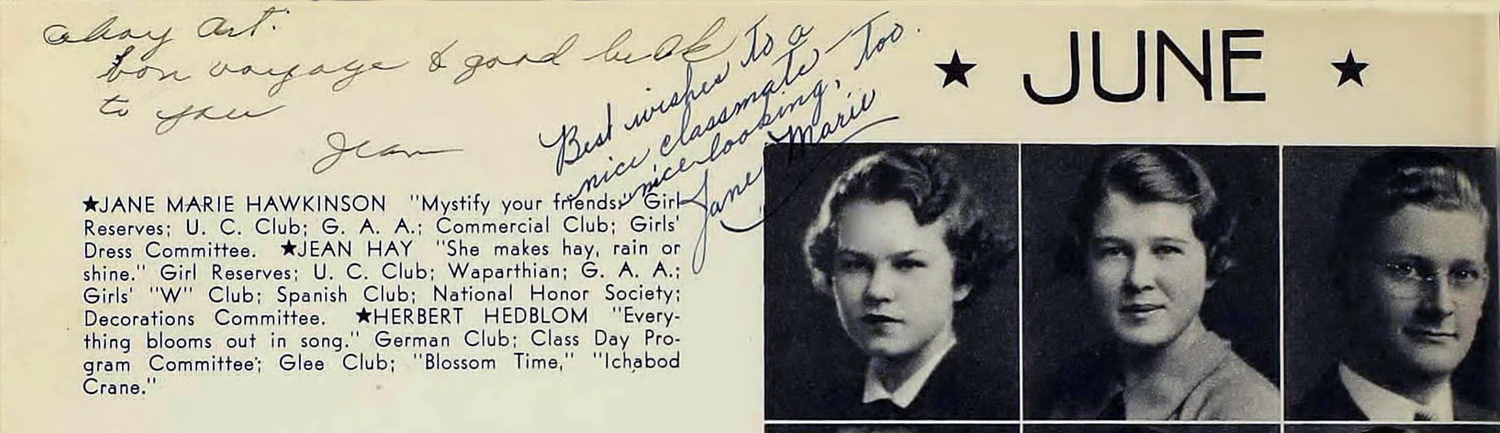 ahoy Art:
bon voyage & good luck
to you
Jean
Best wishes to a
nice classmate –
nice-looking, too.
Jane Marie
★ JUNE ★
★JANE MARIE HAWKINSON "Mystify your friends." Girl
Reserves; U. C. Club; G. A. A.; Commercial Club; Girls'
Dress Committee. ★JEAN HAY "She makes hay, rain or
shine." Girl Reserves; U. C. Club; Waparthian; G. A. A.;
Girls' "W" Club; Spanish Club; National Honor Society;
Decorations Committee. ★HERBERT HEDBLOM "Every-
thing blooms out in song." German Club; Class Day Pro-
gram Committee; Glee Club; "Blossom Time," "Ichabod
Crane."